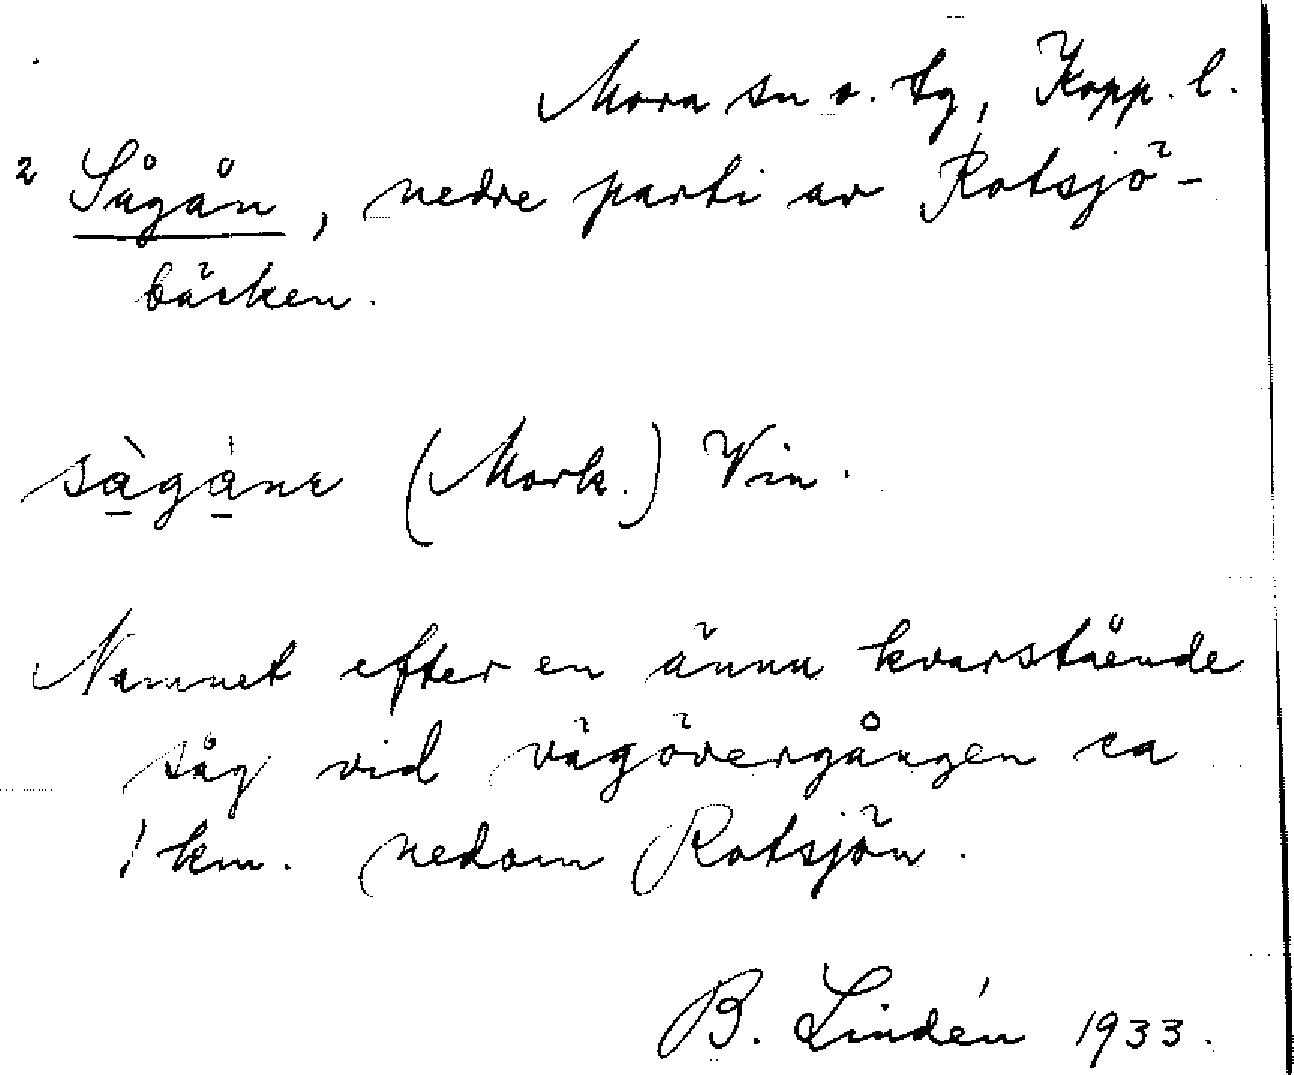 Mora sn o. tg, Kopp. l.
2 Sågån, nedre parti av Rotsjö-
bäcken.
sàgánɛ (Mork.) Vin.
Namnet efter en ännu kvarstående
såg vid vägövergången ca
1 km. nedom Rotsjön.
B. Lindén 1933.